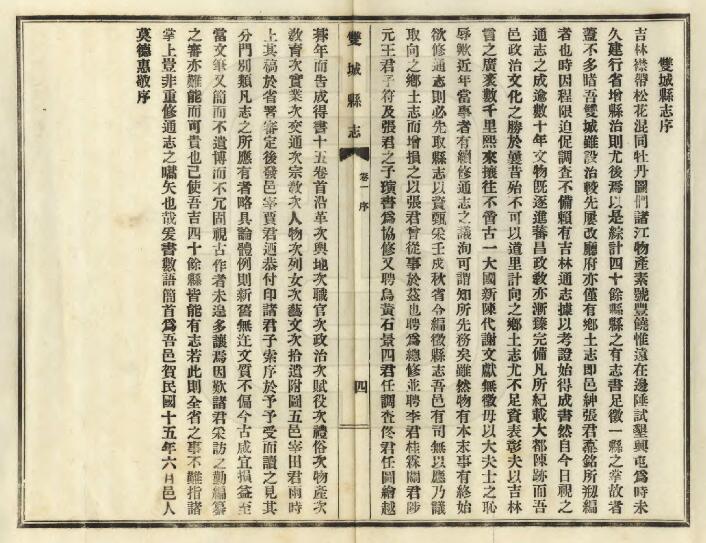 雙城縣志序
吉林襟帶松花混同牡丹圖們諸江物產素號豐饒惟遠在邊陲試墾興屯爲時未
久建行省增縣治則尤後焉以是綜計四十餘縣縣之有志書足徵一縣之掌故者
蓋不多睹吾雙城雖設治較先屢改廳府亦僅有鄉土志即邑紳張君燾銘所剏編
者也時因程限迫促調查不備賴有吉林通志據以考證始得成書然自今日視之
通志之成逾數十年文物旣逐進蕃昌政敎亦漸臻完備凡所紀載大都陳跡而吾
邑政治文化之勝於曩昔殆不可以道里計向之鄉土志尤不足資表彰夫以吉林
言之廣袤數千里熙來攘往不啻古一大國新陳代謝文獻無徵毋以大夫士之恥
辱歟近年當事者有續修通志之議洵可謂知所先務矣雖然物有本末事有終始
欲修通志則必先取縣志以資甄采壬戌秋省令編徵縣志吾邑有司無以應乃議
取向之鄉土志而增損之以張君曾從事於茲也聘爲總修並聘李君桂霖關君陟
元王君子符及張君之子璜書爲協修又聘烏黃石景四君任調查佟君任圖繪越
雙城縣志
卷一 序
四
朞年而告成得書十五卷首沿革次輿地次職官次政治次賦役次禮俗次物產次
敎育次實業次交通次宗敎次人物次列女次藝文次拾遺附圖五邑宰田君雨時
上其稿於省署審定後發邑宰賈君迺恭付印諸君子索序於予予受而讀之見其
分門別類凡志之所應有者略具論體例則新舊無迕文質不偏今古咸宜損益至
當文筆又簡而不遺博而不冗固視古作者未遑多讓焉因歎諸君采訪之勤編纂
之審亦難能而可貴也已使吾吉四十餘縣皆能有志若此則全省之事不難指諸
掌上豈非重修通志之嚆矢也哉爰書數語簡首爲吾邑賀民國十五年六月邑人
莫德惠敬序